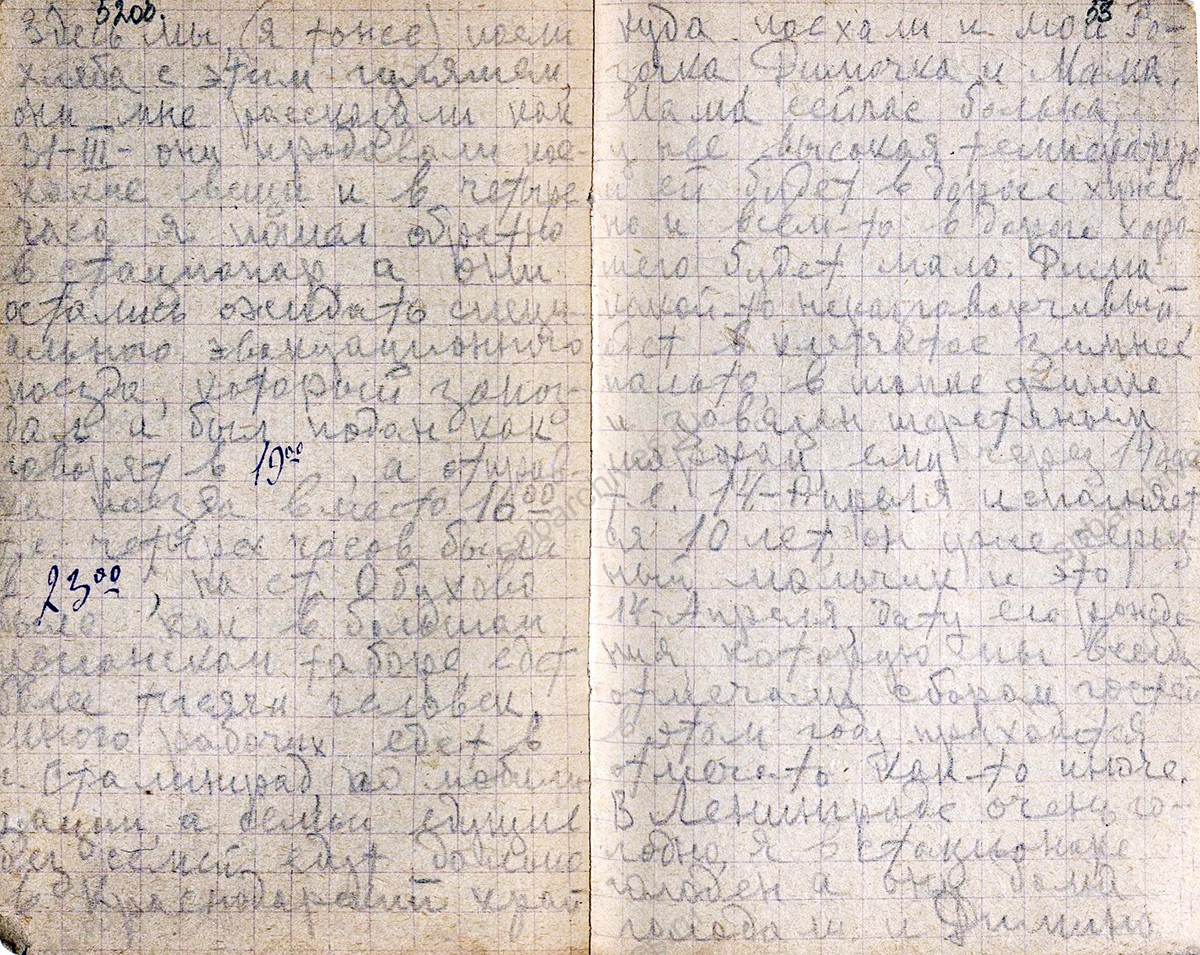 52об.
Здесь мы, (я тоже) поели
хлеба с этим гуляшем,
они мне рассказали как
31-III- они продавали кое-
какие вещи и в четыре
часа я пошел обратно
в стационар, а они
остались ожидать специ-
ального эвакуационного
поезда, который запоз-
дал и был подан как
говорят в 19⁰⁰, а отправ-
ка поезда вместо 16⁰⁰
т.е. четырех часов была
в 23⁰⁰, на ст. Обухово
было как в большом,
цыганском таборе, едет
более тысячи человек,
много рабочих едет в
г. Сталинград, по мобили-
зации, а семьи едущие
без семей едут больше
в Краснодарский край
53
куда поехали и мои Ро-
зочка Димочка и Мама.
Мама сейчас больна,
у нее высокая температура
и ей будет в дороге хуже
но и всем-то в дороге хоро-
шего будет мало. Дима
какой-то неразговорчивый
в клетчатое зимнее
пальто, в шапке финке
и завязан шерстяным
ему через 14 дней
т.е. 14-Апреля исполняет
ся 10 лет, он уже серьез
ный мальчик и это
14-Апреля, дату его рожде
ния которую мы всегда
отмечали сбором гостей
в этом году приходится
отмечать как-то иначе.
В Ленинграде очень го-
лодно, я в стационаре
голоден а они дома
голодали и Димино